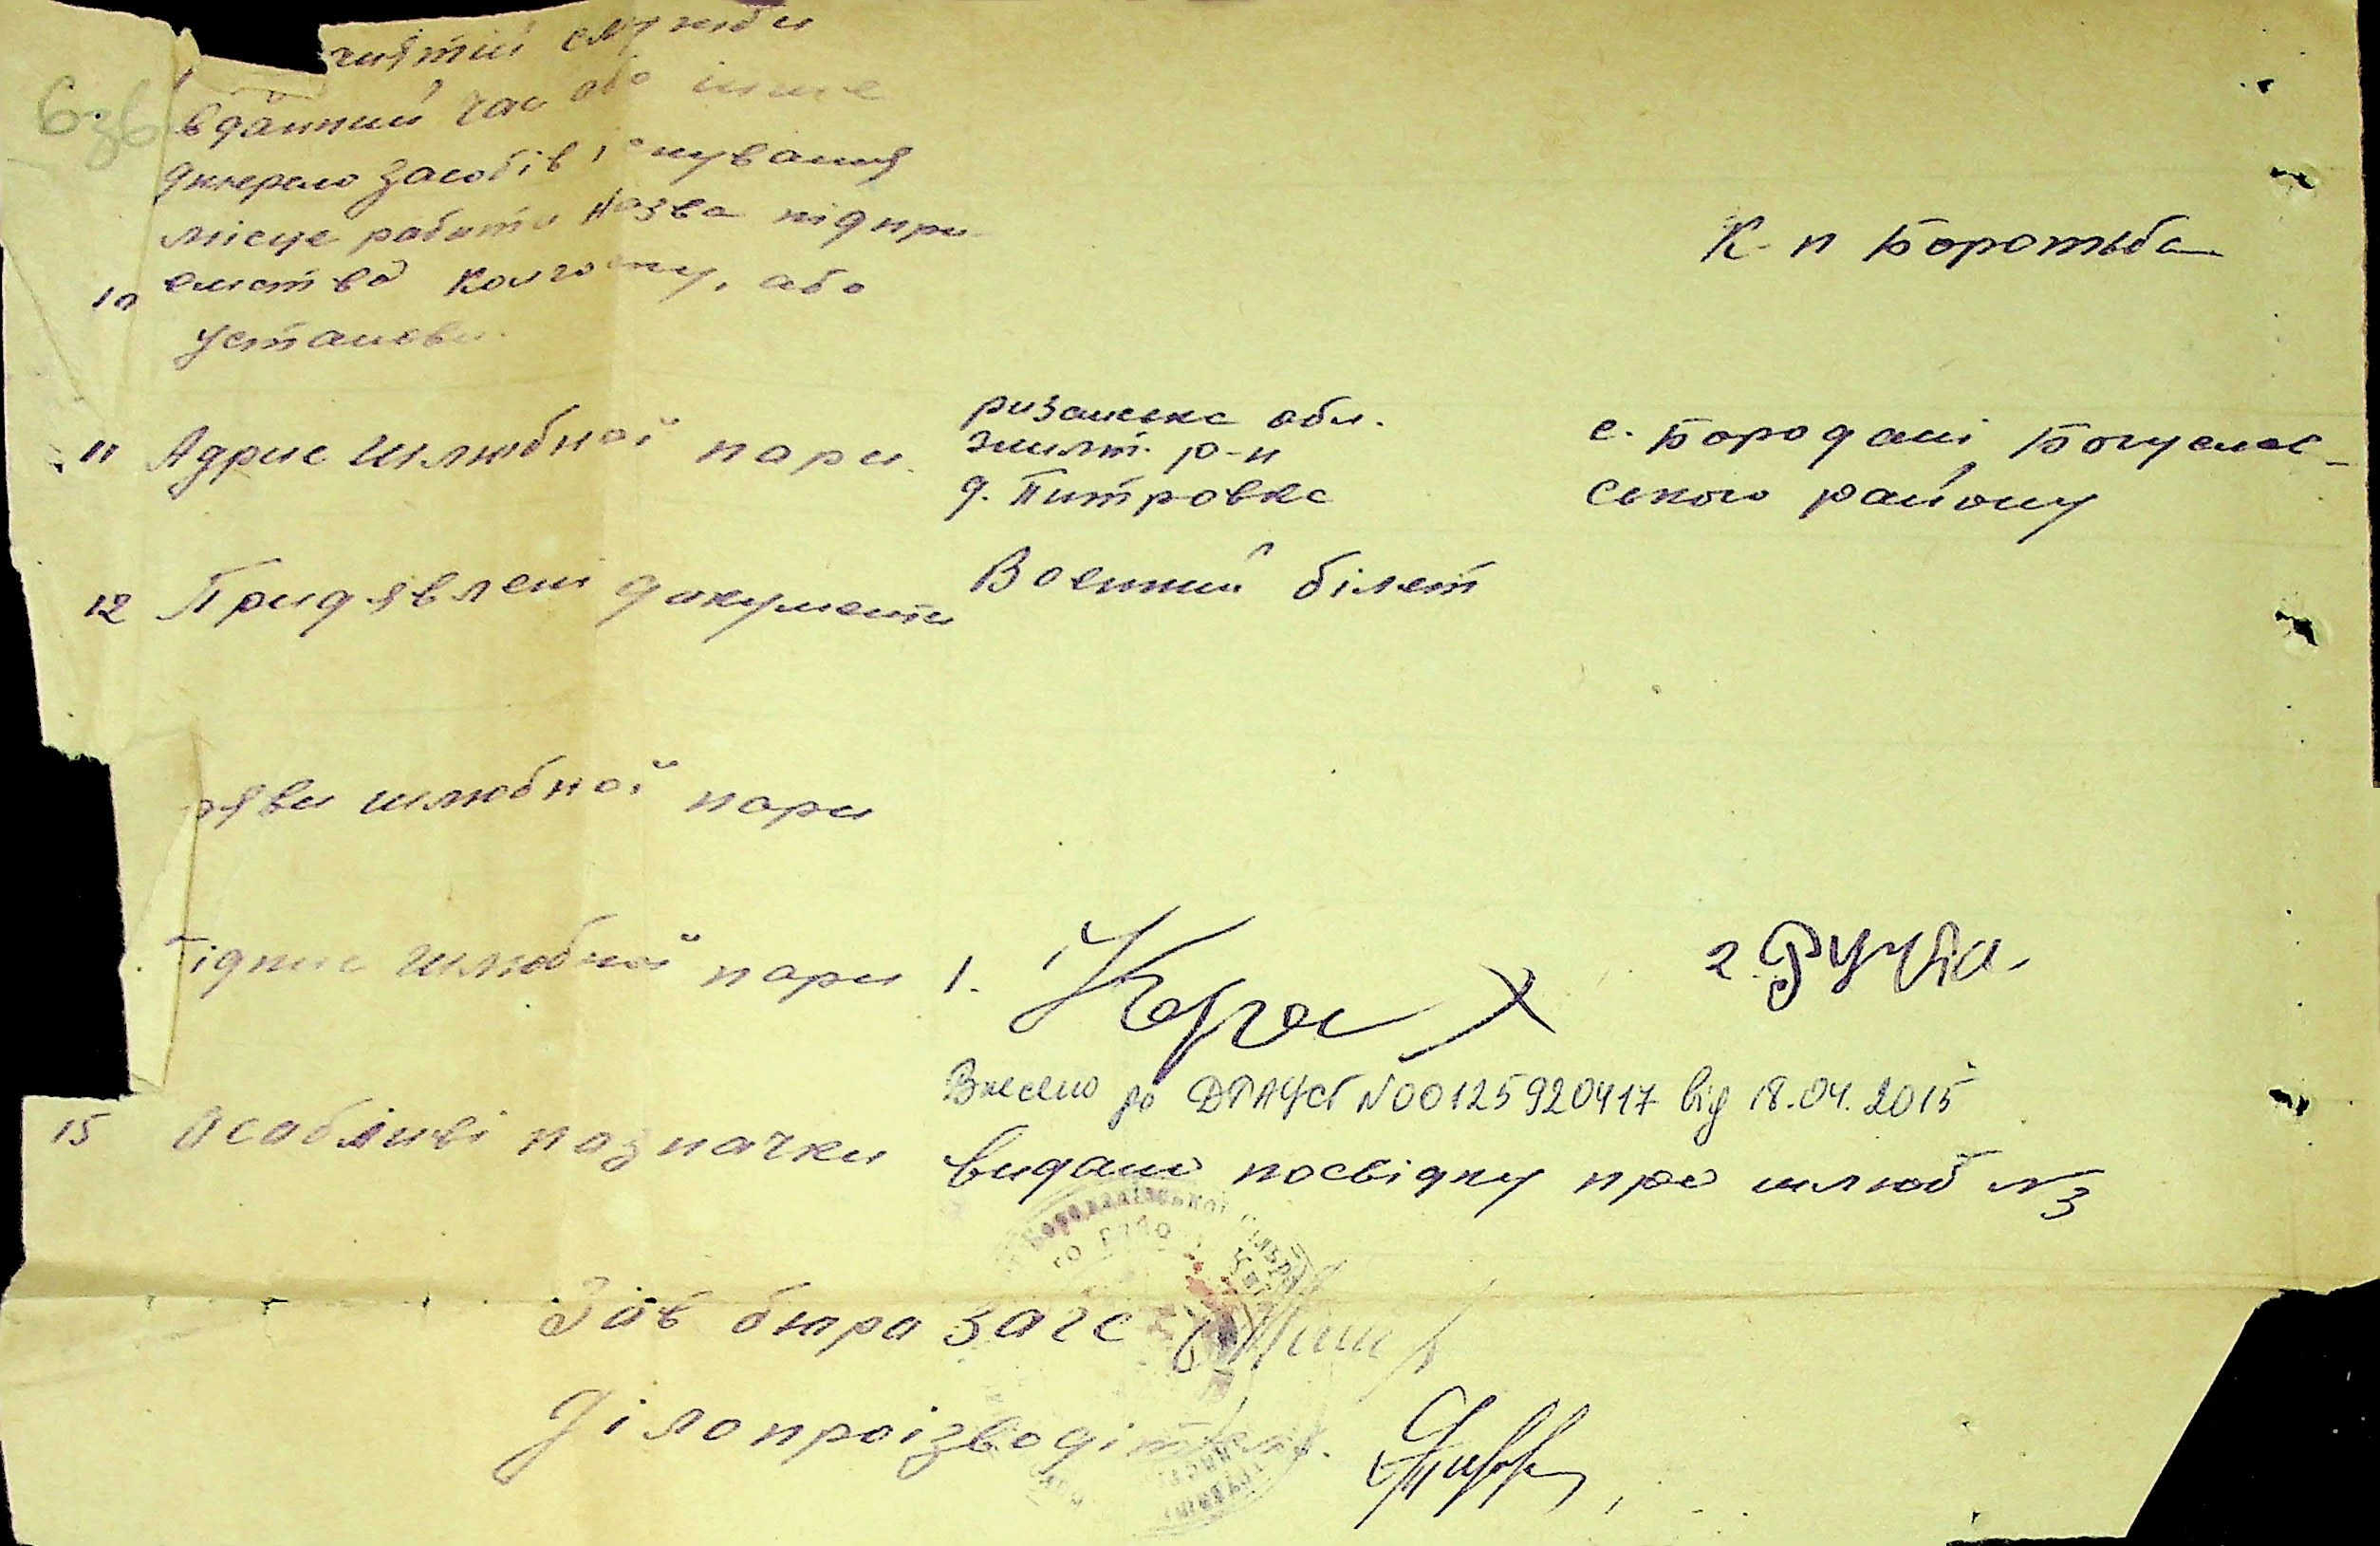 служби
6 зв
в данний час або інше
джерело засобів існування
місце работи назва підпри-
10 ємства колгоспу, або
установи.
К-п Боротьба
11 Адрис шлюбної пари
ризанська обл.
жилт. р-н
д. Питровка
с. Бородані Богуслав-
ського району
12 Придявлені документи
Воєнний білет
шлюбної пари
ідпис шлюбної пари 1.
2 Ручка
Внесено до ДРАЦСГ №00125920417 від 18.04.2015
15 Особливі позначки видано посвідку про шлюб №3
Зав бюра загс
Ділопроізводітель.